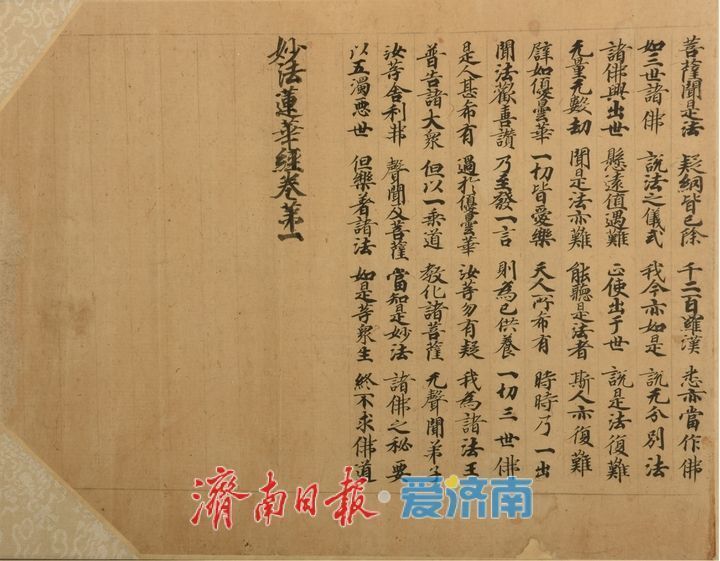 菩薩聞是法 疑網皆已除 千二百羅漢 悉亦當作佛
如三世諸佛 說法之儀式 我今亦如是 說无分別法
諸佛興出世 懸遠值遇難 正使出于世 說是法復難
无量无數劫 聞是法亦難 能聽是法者 斯人亦復難
譬如優曇華 一切皆愛樂 天人所希有 時時乃一出
聞法歡喜讚 乃至發一言 則為已供養 一切三世佛
是人甚希有 過於優曇華 汝等勿有疑 我為諸法王
普告諸大衆 但以一乘道 教化諸菩薩 无聲聞弟子
汝等舍利弗 聲聞及菩薩 當知是妙法 諸佛之秘要
以五濁惡世 但樂著諸法 如是等衆生 終不求佛道
妙法蓮華經卷第一
濟南日報·爱济南